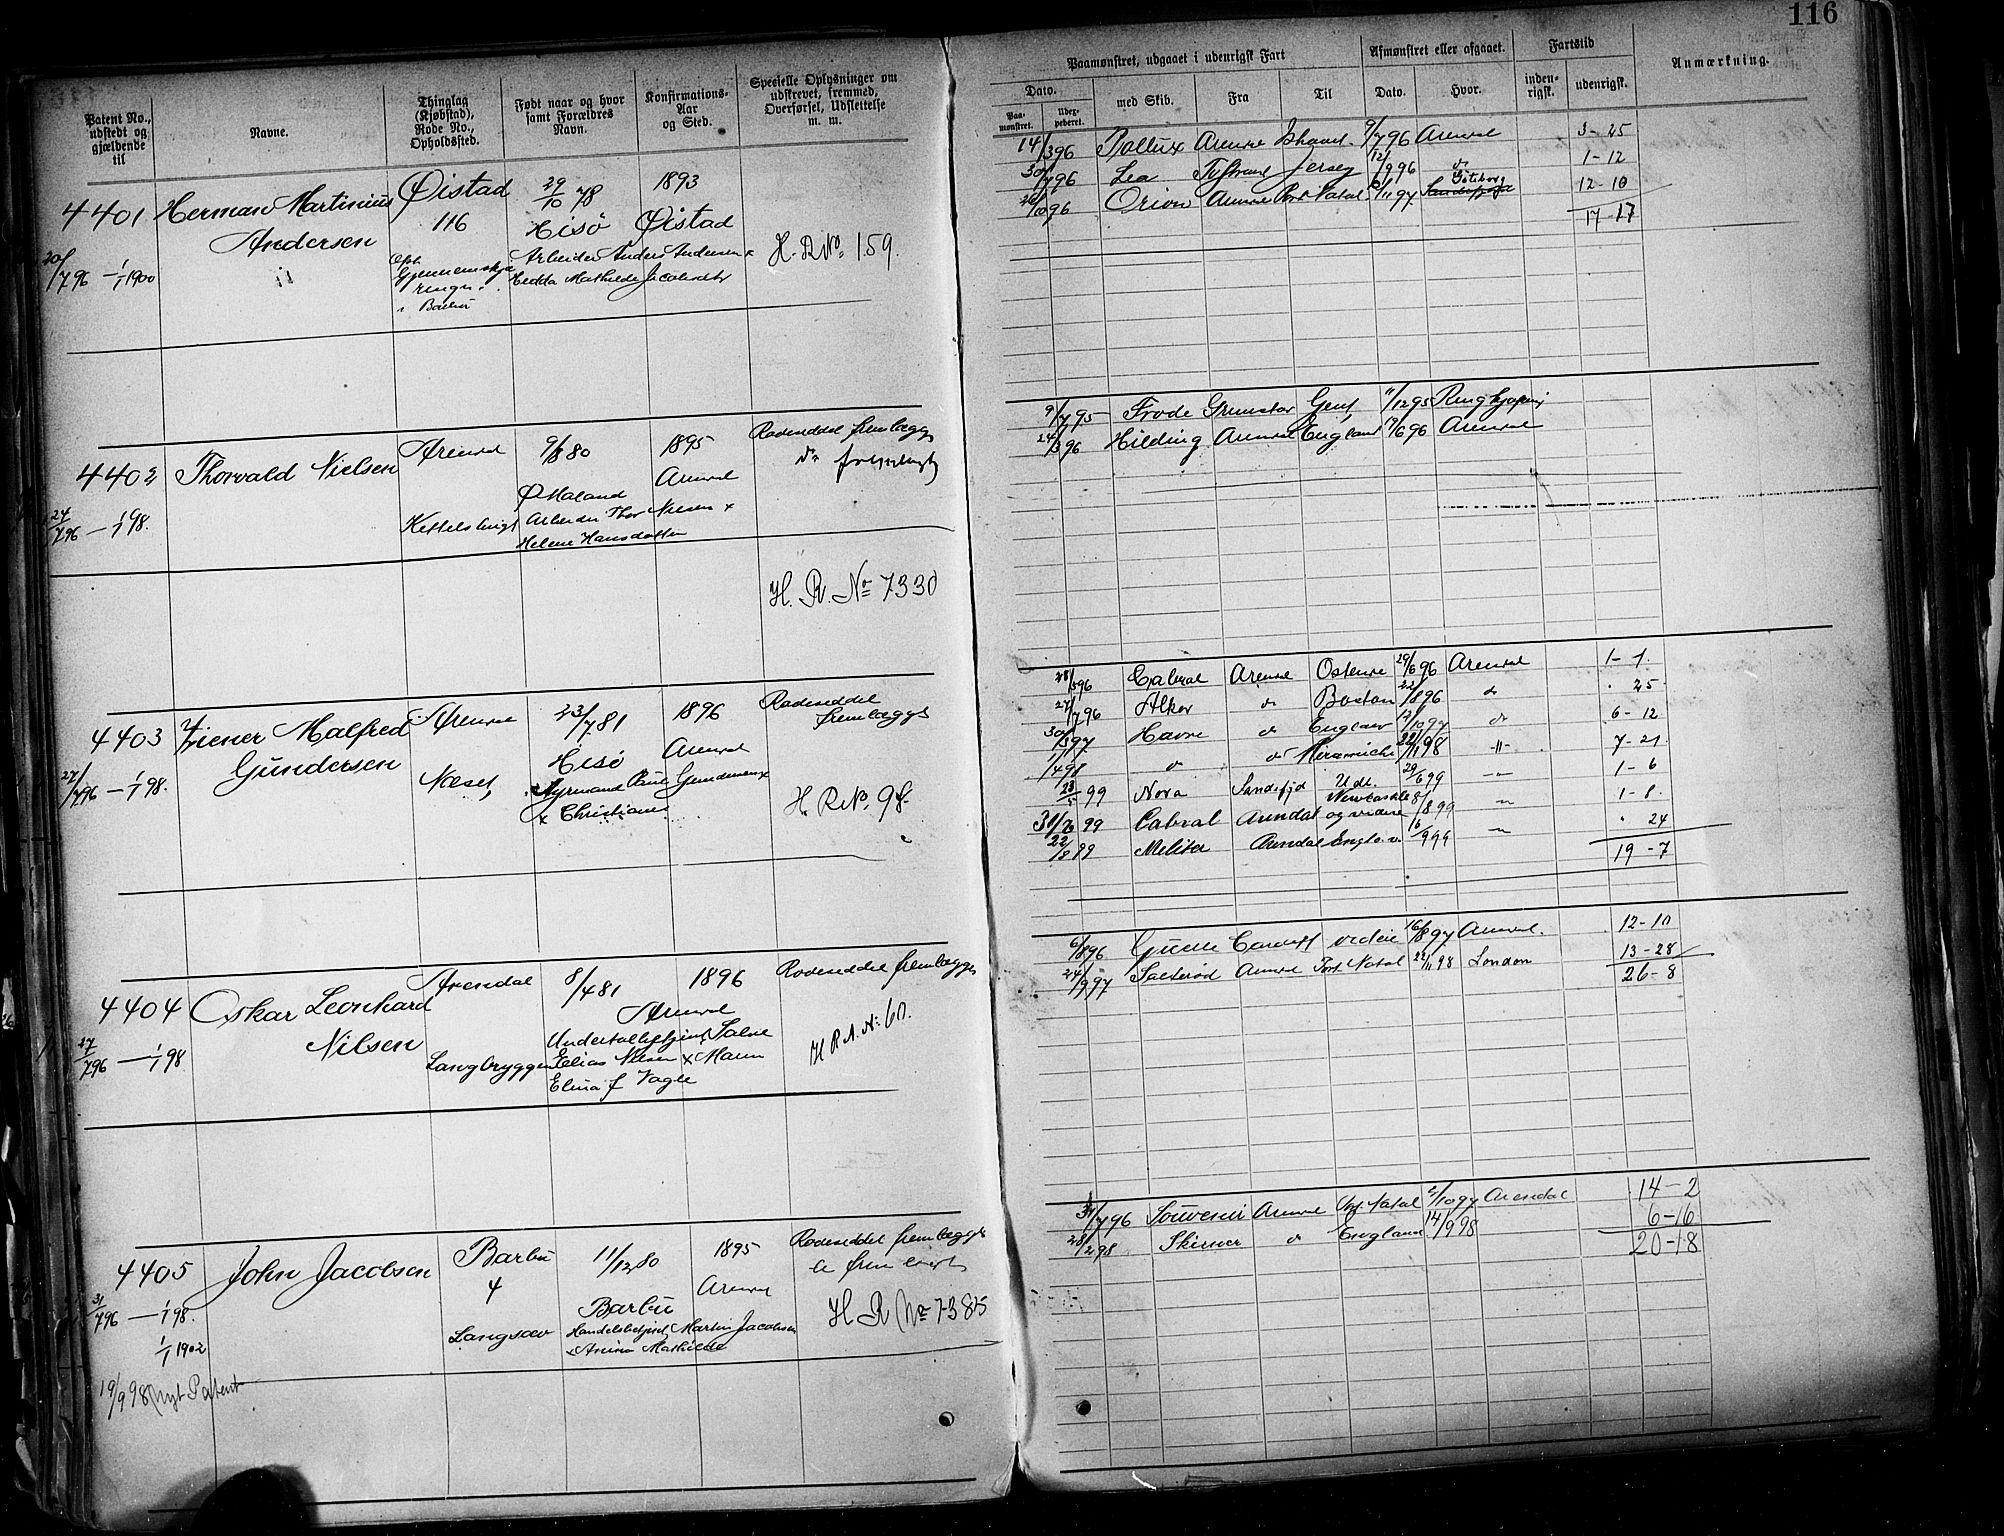 116
Patent No., udstedt og gjældende til
Navne.
Thinglag (Kjøbstad), Rode No., Opholdssted.
Født naar og hvor samt Forældres Navn.
Konfirmations-Aar og Sted.
Specielle Oplysninger om udskrevet, fremmed, Overførsel, Udslettelse m. m.
Paamønstret, udgaaet i udenrigsk Fart
Dato.
Paamønstret.
med Skib.
Fra
Til
Afmønstret eller afgaaet.
Dato.
Hvor.
Fartstid
indenrigsk.
udenrigsk.
Anmærkning.
4401
20/7 96 — 1/1 1900
Herman Martinius
Andersen
Øistad
116
29/10 78
Hisø
Arbeider Anders Andersen x
Hedda Mathilde Jacobsdt
1893
Øistad
H. R No. 159.
14/3 96 Pollux 9/7 96 Arendal 3-25
30/7 96 Lea Jersey 12/9 96 do 1-12
Orion Arendal Port Natal Göteborg 12-10
17-17
4402
24/7 96 — 1/1 98.
Thorvald Nielsen
Arendal
9/8 80
Ø Maland
Arbeider Thor Nielsen x
Helene Hansdatter
1895
Arendal
Rodeseddel fremlægges
H. R. No 7330
9/7 95 Frode Grimstad Gent 11/12 95 Ringkjøping
24/3 96 Hilding Arendal England 6 96 Arendal
4403
27/7 96 — 1/1 98.
Ziener Malfred
Gundersen
Arendal
Neset
23/7 81
Hisø
Styrmand Gundersen x
x Christiane
1896
Arendal
Rodeseddel
fremlægges
H. R No. 98.
28/5 96 Cabral Arendal Ostende 29/6 96 Arendal 1-1.
27/7 96 Alkor do Boston 22/8 96 do 25
Havre do England 10 97 do 6-12
1/4 98 do do Miramichi 22/11 98 -"- 7-21
23/5 99 Nova Sandefjd Udl. 29/6 99 -"- 1-6
31/ 99 Cabral Arendal Newcastle og videre 8/8 99 -"- 1-8.
22/8 99 Melita Arendal Engl. o.v. 16/9 99 -"- 24
19-7
4404
27/7 96 — 1/1 98
Oskar Leonhard
Nilsen
Arendal
Langbryggen
8/4 81
Arendal
Undertoldbetjent
Elias Nilsen x Maren
Elina f Vagle
1896
Rodeseddel fremlægges
H R A. No: 60.
6/8 96 Cardiff videre 16/8 97 Arendal. 12-10
24/9 97 Salterød Arendal Port Natal 22/11 98 London 13-28
26-8
4405
31/7 96 — 1/1 98.
1/1 1902
19/9 98 nyt Patent
John Jacobsen
Barbu
4
Langsæv
11/12 80
Barbu
Handelsbetjent Martin Jacobsen
x Anina Mathilde
1895
Arendal
Rodeseddel fremlægges
H R No 7385
31/7 96 Souvenir Arendal Port Natal 2/10 97 Arendal 14-2
28/2 98 Skirner do England 14/9 98 6-16
20-18